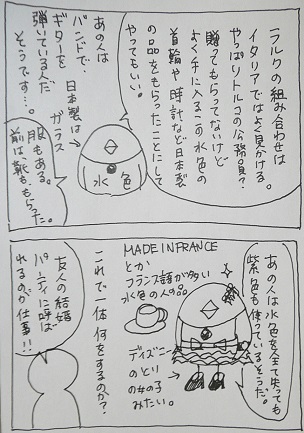 フルクの組み合わせは
イタリアではよく見かける。
やっぱりトルコの公務員?
贈ってもらってないけど
よく手に入るこの水色の
首輪や時計など日本製
の品をもらったことにして
やってもいい。
あの人は
バンドで
ギターを
弾いている人だ
そうです…。
日本製は→
ガラス
水色
服もある。
前は、靴も、もらった。
あの人は水色を全て失っても
紫色も使っているそうだ。
MADE IN FRANCE
とか
フランス語が多い
水色の人の品
ディズニー
のとり
の女の子
みたい。
これで一体何をするのか?
友人の結婚
パーティに呼ば
れるのが仕事!!